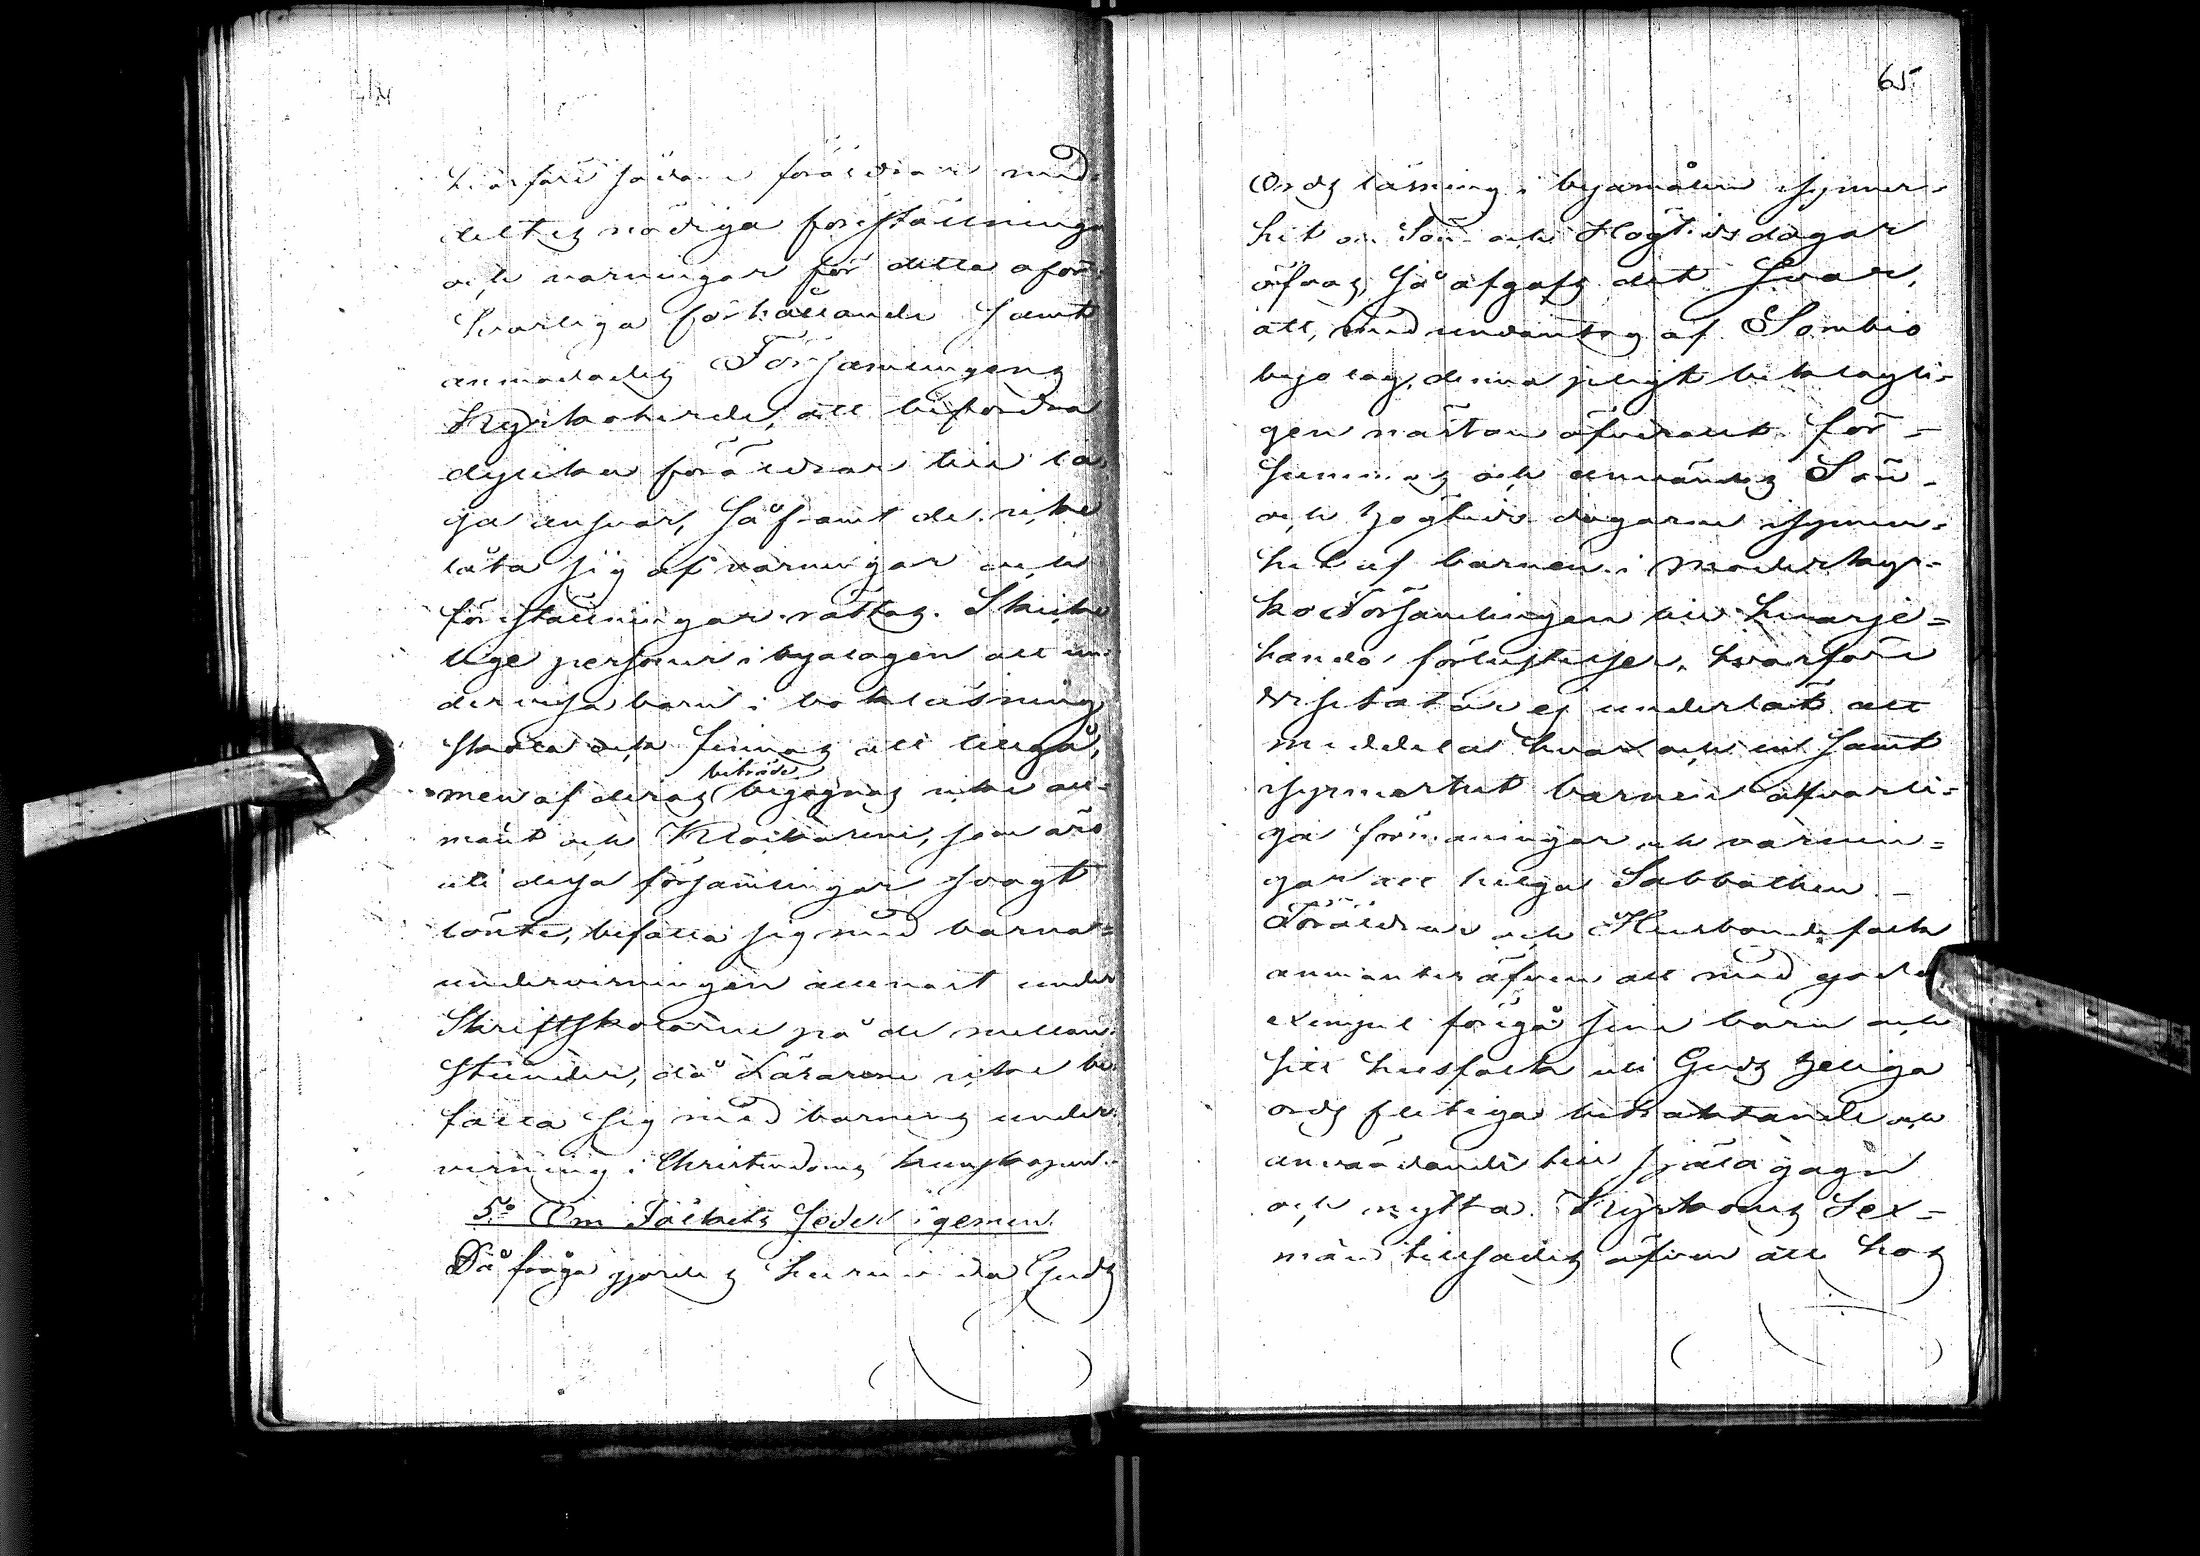 hvarföre sådane föräldrar med-
deltes nödiga föreställningar
och varningar för detta oför-
svarliga förhållande samt
anmodades Församlingens
Kyrkoherde, att befordra
dylika föräldrar till la-
ga ansvar, såframt de icke
låta sig af varningar och
föreställningar rättas. Skicke-
lige personer i byalagen att un-
dervisa barn i bokläsning
skola och finnas att tillgå,
men af deras biträde begagnas icke all-
mänt och Klockarene, som äro
uti dessa församlingar svagt
lönte, befatta sig med barna-
undervisningen allenast under
Skriftskolorne på de mellan-
stunder, då Lärarene icke be-
fatta sig med barnens under-
visning i Christendoms kunskapen.
5:o Om Folkets seder i gemen.
Då fråga gjordes huruvida Guds
65.
Ords läsning i byamålen isynner-
het om Sön- och Högtidsdagar
öfvas, så afgafs det svar,
att, med undantag af Sombio
byalag, denna pligt beklagli-
gen nästan öfverallt för-
summas och användes Sön-
och högtids dagarne isynner-
het af barnen i Moderkyr-
ko Församlingen till hvarje-
handa förlustelser, hvarföre
Visitator ej underlät att
meddela hvar och en samt
isynnerhet barnen alfvarli-
ga förmaningar och varnin-
gar att helga Sabbathen. –
Föräldrar och Husbondefolk
anmantes äfven att med goda
exempel föregå sine barn och
sitt husfolk uti Guds heliga
ords flitiga betraktande och
användande till själagagn
och nytta. Kyrkones Sex-
män tillsades äfven att hos